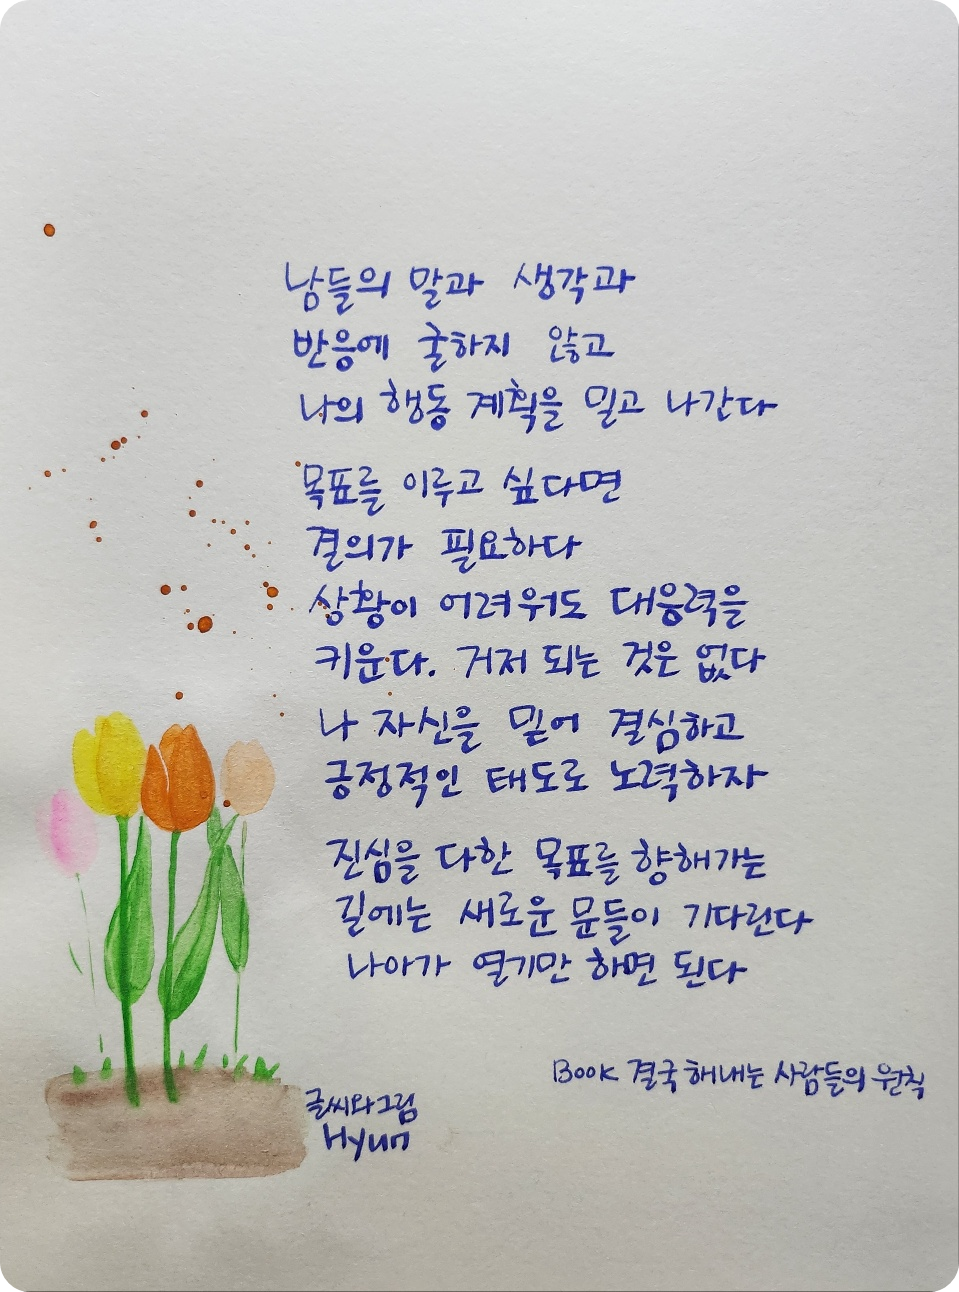 남들의 말과 생각과
반응에 굴하지 않고
나의 행동 계획을 밀고 나간다
목표를 이루고 싶다면
결의가 필요하다
상황이 어려워도 대응력을
키운다. 거저 되는 것은 없다
나 자신을 믿어 결심하고
긍정적인 태도로 노력하자
진심을 다한 목표를 향해가는
길에는 새로운 문들이 기다린다
나아가 열기만 하면 된다
Book 결국 해내는 사람들의 원칙
글씨와그림
Hyun